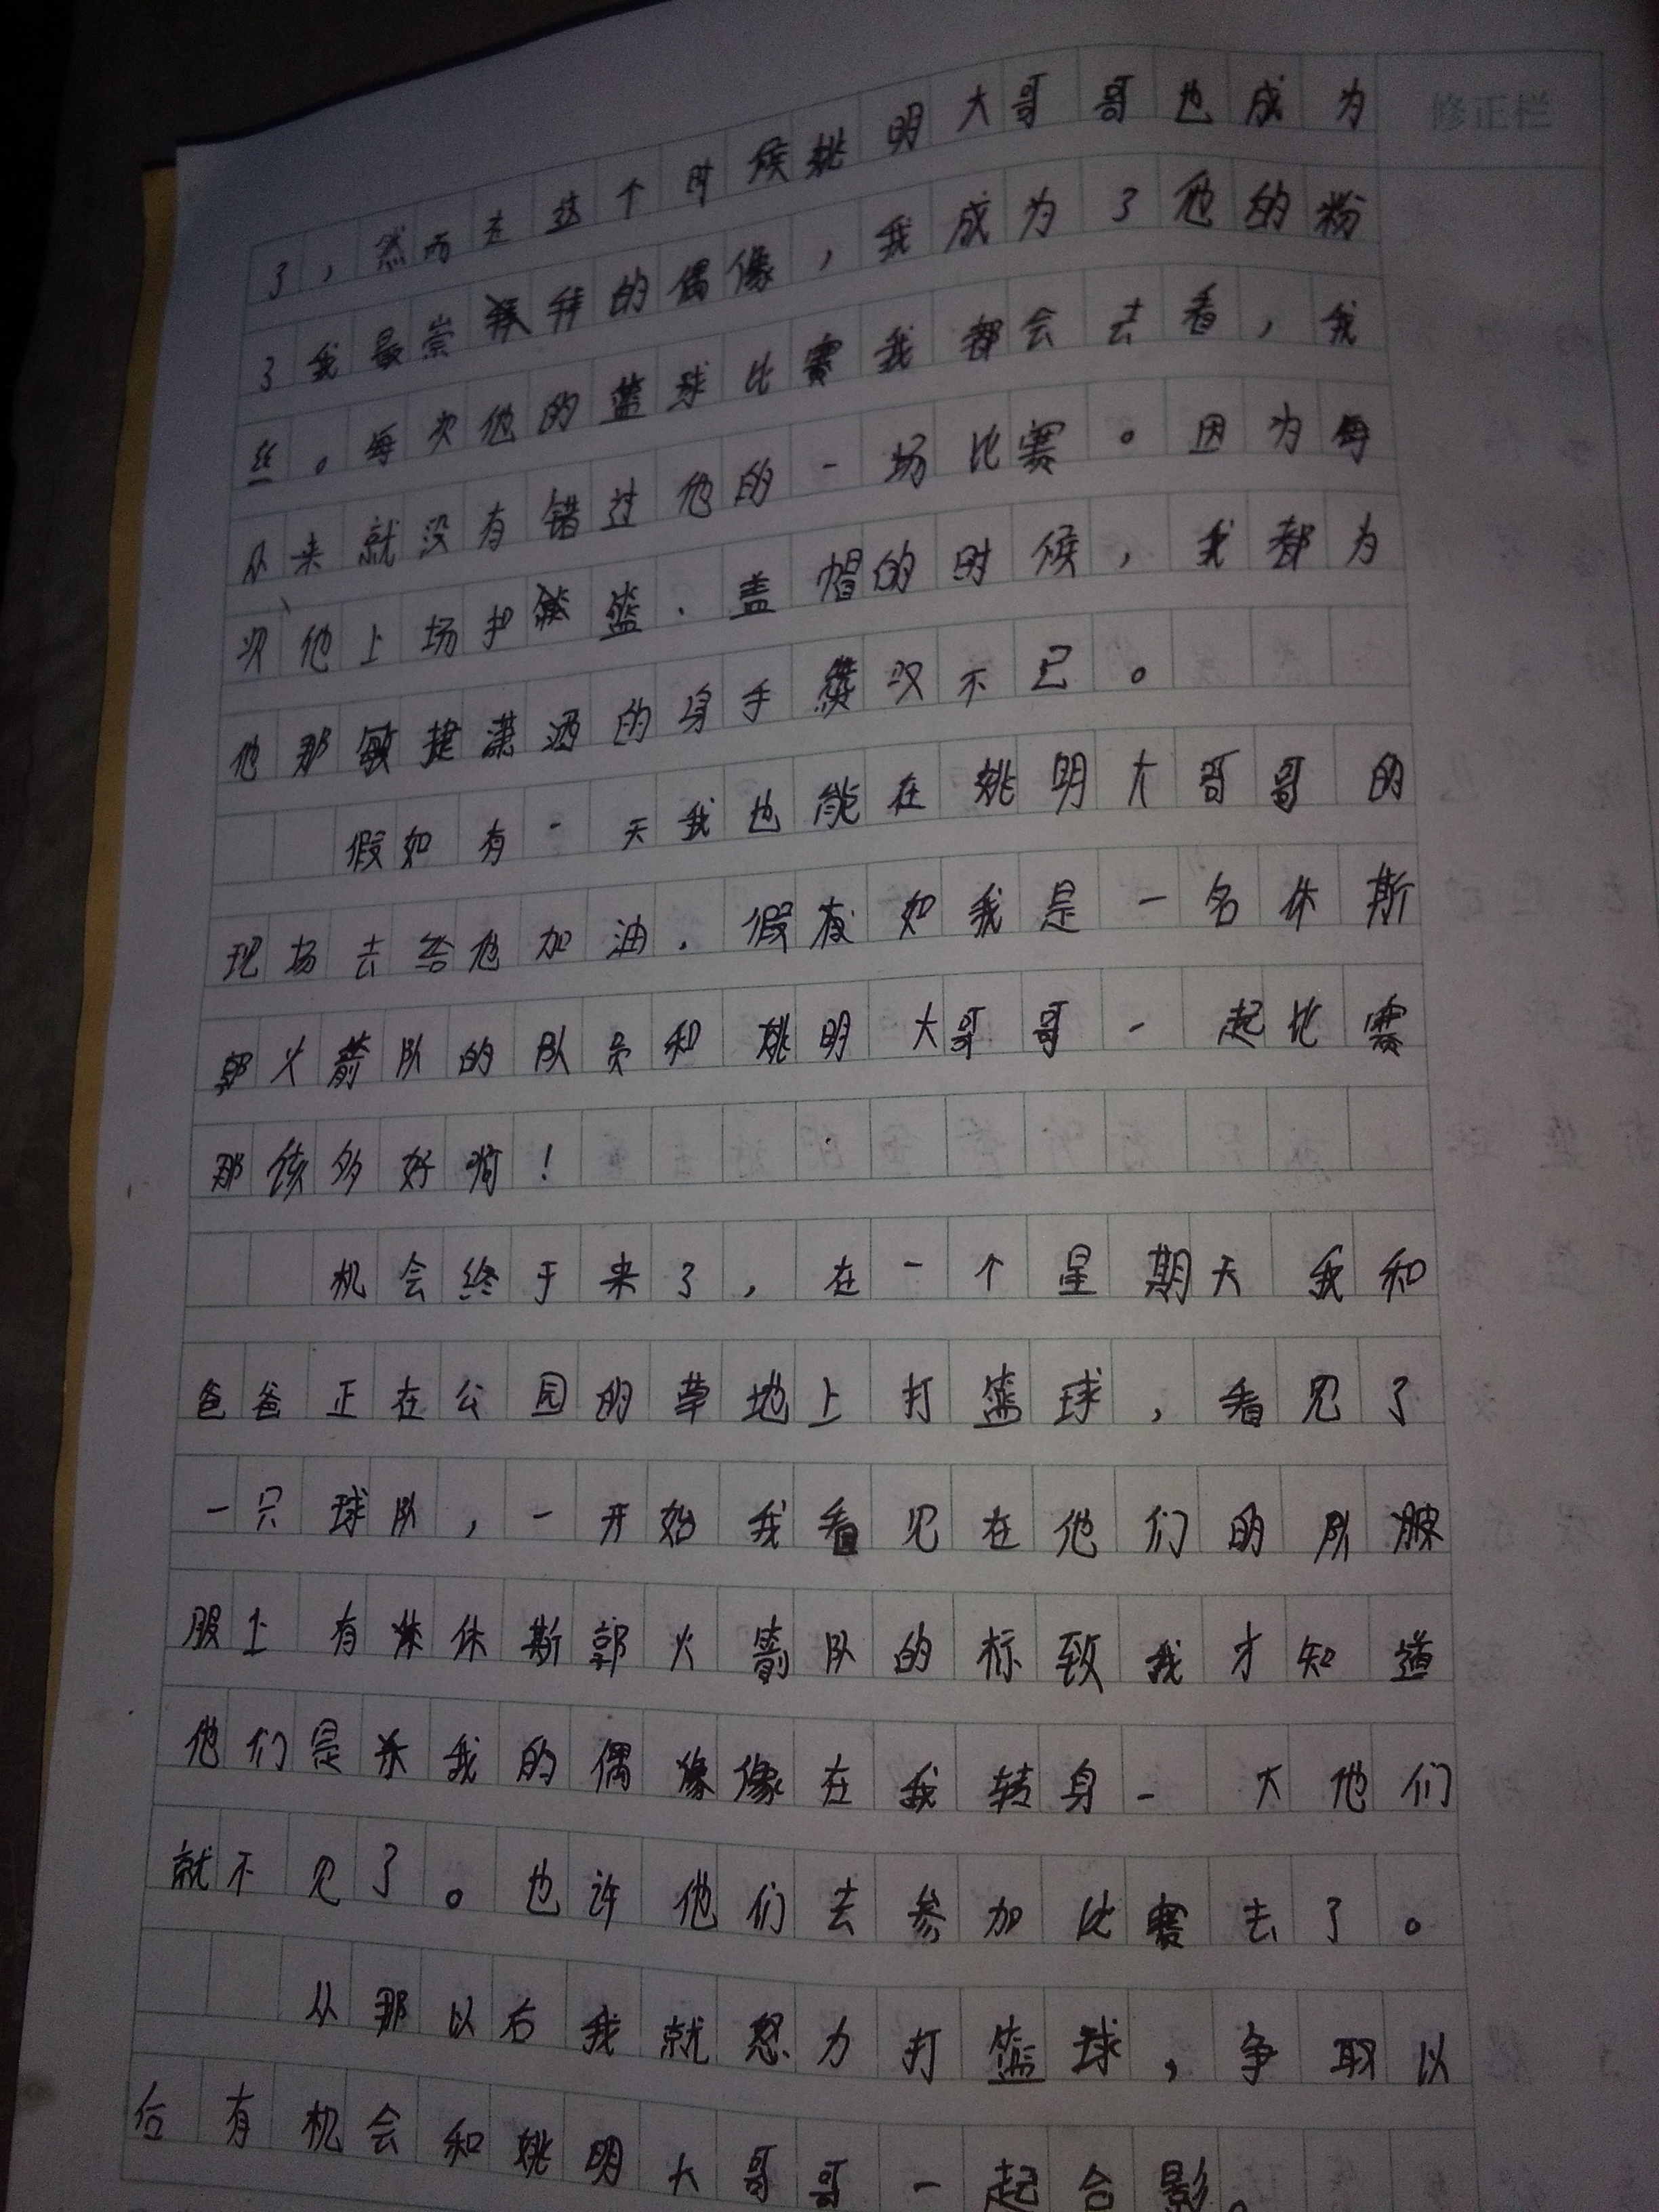 修正栏
了，然而在这个时候姚明大哥哥也成为
了我最崇拜的偶像，我成为了他的粉
丝。每次他的篮球比赛我都会去看，我
从来就没有错过他的一场比赛。因为每
次他上场扣篮、盖帽的时候，我都为
他那敏捷潇洒的身手赞叹不已。
假如有一天我也能在姚明大哥哥的
现场去给他加油．假如我是一名休斯
郭火箭队的队员和姚明大哥哥一起比赛
那该多好啊！
机会终于来了，在一个星期天我和
爸爸正在公园的草地上打篮球，看见了
一只球队，一开始我看见在他们的队
服上有休斯郭火箭队的标致我才知道
他们是我的偶像在我转身一大他们
就不见了。也许他们去参加比赛去了。
从那以后我就努力打篮球，争取以
后有机会和姚明大哥哥一起合影。